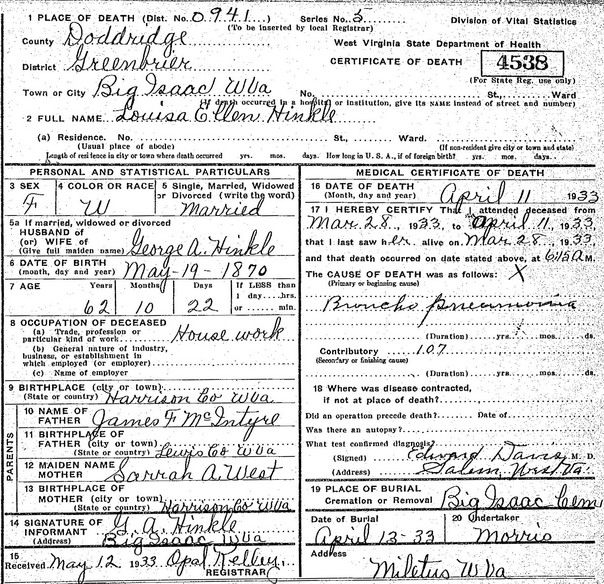 1 PLACE OF DEATH (Dist. No. 0941) Series No. 5 Division of Vital Statistics
(To be inserted by local Registrar)
County Doddridge West Virginia State Department of Health
District Greenbrier CERTIFICATE OF DEATH 4538
(For State Reg. use only)
Town or City Big Isaac WVa No. St., Ward
(If death occurred in a hospital or institution, give its NAME instead of street and number)
2 FULL NAME Louisa Ellen Hinkle
(a) Residence. No. St., Ward.
(Usual place of abode) (If non-resident give city or town and state)
Length of residence in city or town where death occurred yrs. mos. days. How long in U. S., if of foreign birth? yrs. mos. days.
PERSONAL AND STATISTICAL PARTICULARS
3 SEX
F
4 COLOR OR RACE
W
5 Single, Married, Widowed
or Divorced (write the word)
Married
5a If married, widowed or divorced
HUSBAND of
(or) WIFE of George A. Hinkle
(Give full maiden name)
6 DATE OF BIRTH
(month, day and year) May-19-1870
7 AGE Years Months Days If LESS than
1 day....hrs.
or ...... min.
62 10 22
8 OCCUPATION OF DECEASED
(a) Trade, profession or
particular kind of work House work
(b) General nature of industry,
business, or establishment in
which employed (or employer)
(c) Name of employer
9 BIRTHPLACE (city or town)
(State or country) Harrison Co WVa
PARENTS
10 NAME OF
FATHER James F McIntyre
11 BIRTHPLACE OF
FATHER (city or town)
(State or country) Lewis Co WVa
12 MAIDEN NAME
MOTHER Sarrah A. West
13 BIRTHPLACE OF
MOTHER (city or town)
(State or country) Harrison Co WVa
14 SIGNATURE OF
INFORMANT G. A. Hinkle
(Address) Big Isaac WVa
15
Received May 12 1933 Opal Kelley,
REGISTRAR
MEDICAL CERTIFICATE OF DEATH
16 DATE OF DEATH
(Month, day and year) April 11 1933
17 I HEREBY CERTIFY That I attended deceased from
Mar 28, 1933, to April 11, 1933,
that I last saw her alive on Mar 28, 1933,
and that death occurred on date stated above, at 6:15 A M.
The CAUSE OF DEATH was as follows: X
(Primary or beginning cause)
Broncho pneumonia
(Duration) yrs. mos. ds.
Contributory 107
(Secondary or finishing cause)
(Duration) yrs. mos. ds.
18 Where was disease contracted,
if not at place of death?
Did an operation precede death? Date of
Was there an autopsy?
What test confirmed diagnosis?
(Signed) Edward Davis M. D.
(Address) Salem, West Va.
19 PLACE OF BURIAL
Cremation or Removal Big Isaac Cem
Date of Burial
April 13-33
20 Undertaker
Morris
Address
Miletus WVa